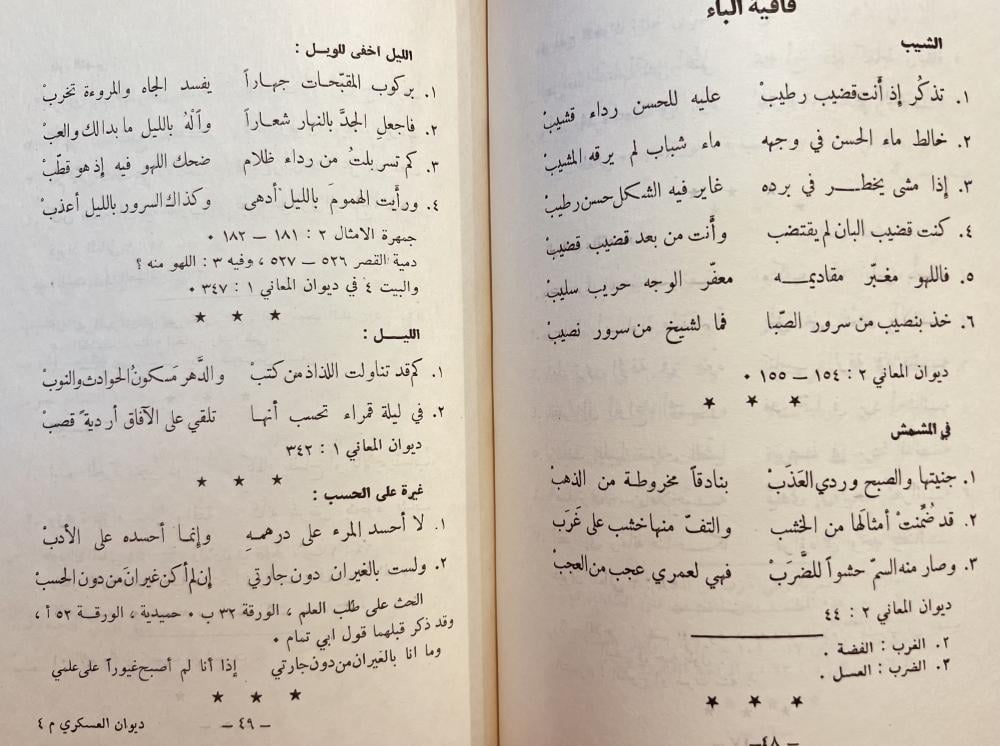 قافية الباء
الشيب
١. تذكُر إذ أنت قضيب رطيبْ عليه للحسن رداء قشيبْ
٢. خالط ماء الحسن في وجهه ماء شباب لم يرقه المشيبْ
٣. إذا مشى يخطر في برده غاير فيه الشكل حسن رطيبْ
٤. كنت قضيب البان لم يقتضب وأنت من بعد قضيب قضيبْ
٥. فاللهو مغبّر مقاديمه معفّر الوجه حريب سليبْ
٦. خذ بنصيب من سرور الصّبا فما لشيخ من سرور نصيبْ
ديوان المعاني ٢ : ١٥٤ – ١٥٥ ٠
★ ★ ★
في المشمش
١. جنيتها والصبح وردي العَذَبْ بنادقاً مخروطة من الذهبْ
٢. قد ضُمِّنتْ أمثالَها من الخشب والتفّ منها خشب على غَرَبْ
٣. وصار منه السمّ حشواً للضَّرَبْ فهي لعمري عجب من العجبْ
ديوان المعاني ٢ : ٤٤
٢. الغرب : الفضة .
٣. الضرب : العسل .
★ ★ ★
–٤٨–
الليل اخفى للويل :
١. بركوب المقبّحات جهاراً يفسد الجاه والمروءة تخربْ
٢. فاجعلِ الجدَّ بالنهار شعاراً وٱلْهُ بالليل ما بدالك والعبْ
٣. كم تسربلتُ من رداء ظلام ضحك اللهو فيه إذ هو قطّبْ
٤. ورأيت الهمومَ بالليل أدهى وكذاك السرور بالليل أعذبْ
جمهرة الامثال ٢ : ١٨١ – ١٨٢ ٠
دمية القصر ٥٢٦ – ٥٢٧ ، وفيه ٣ : اللهو منه ؟
والبيت ٤ في ديوان المعاني ١ : ٣٤٧ ٠
★ ★ ★
الليـل :
١. كم قد تناولت اللذاذ من كثبْ والدَّهر مَسكونُ الحوادث والنوبْ
٢. في ليلة قمراء تحسب أنها تلقي على الآفاق أردية ً قصبْ
ديوان المعاني ١ : ٣٤٢
★ ★ ★
غيرة على الحسب :
١. لا أحسد المرء على درهمهِ وإنما أحسده على الأدبْ
٢. ولست بالغيران دون جارتي إن لم أكن غيرانَ من دون الحسبْ
الحث على طلب العلم ، الورقة ٣٢ ب ٠ حميدية ، الورقة ٥٢ أ ،
وقد ذكر قبلهما قول ابي تمام ٠
وما انا بالغيران من دون جارتي إذا أنا لم أصبح غيوراً على علمي
★ ★ ★
– ٤٩ –
ديوان العسكري م ٤